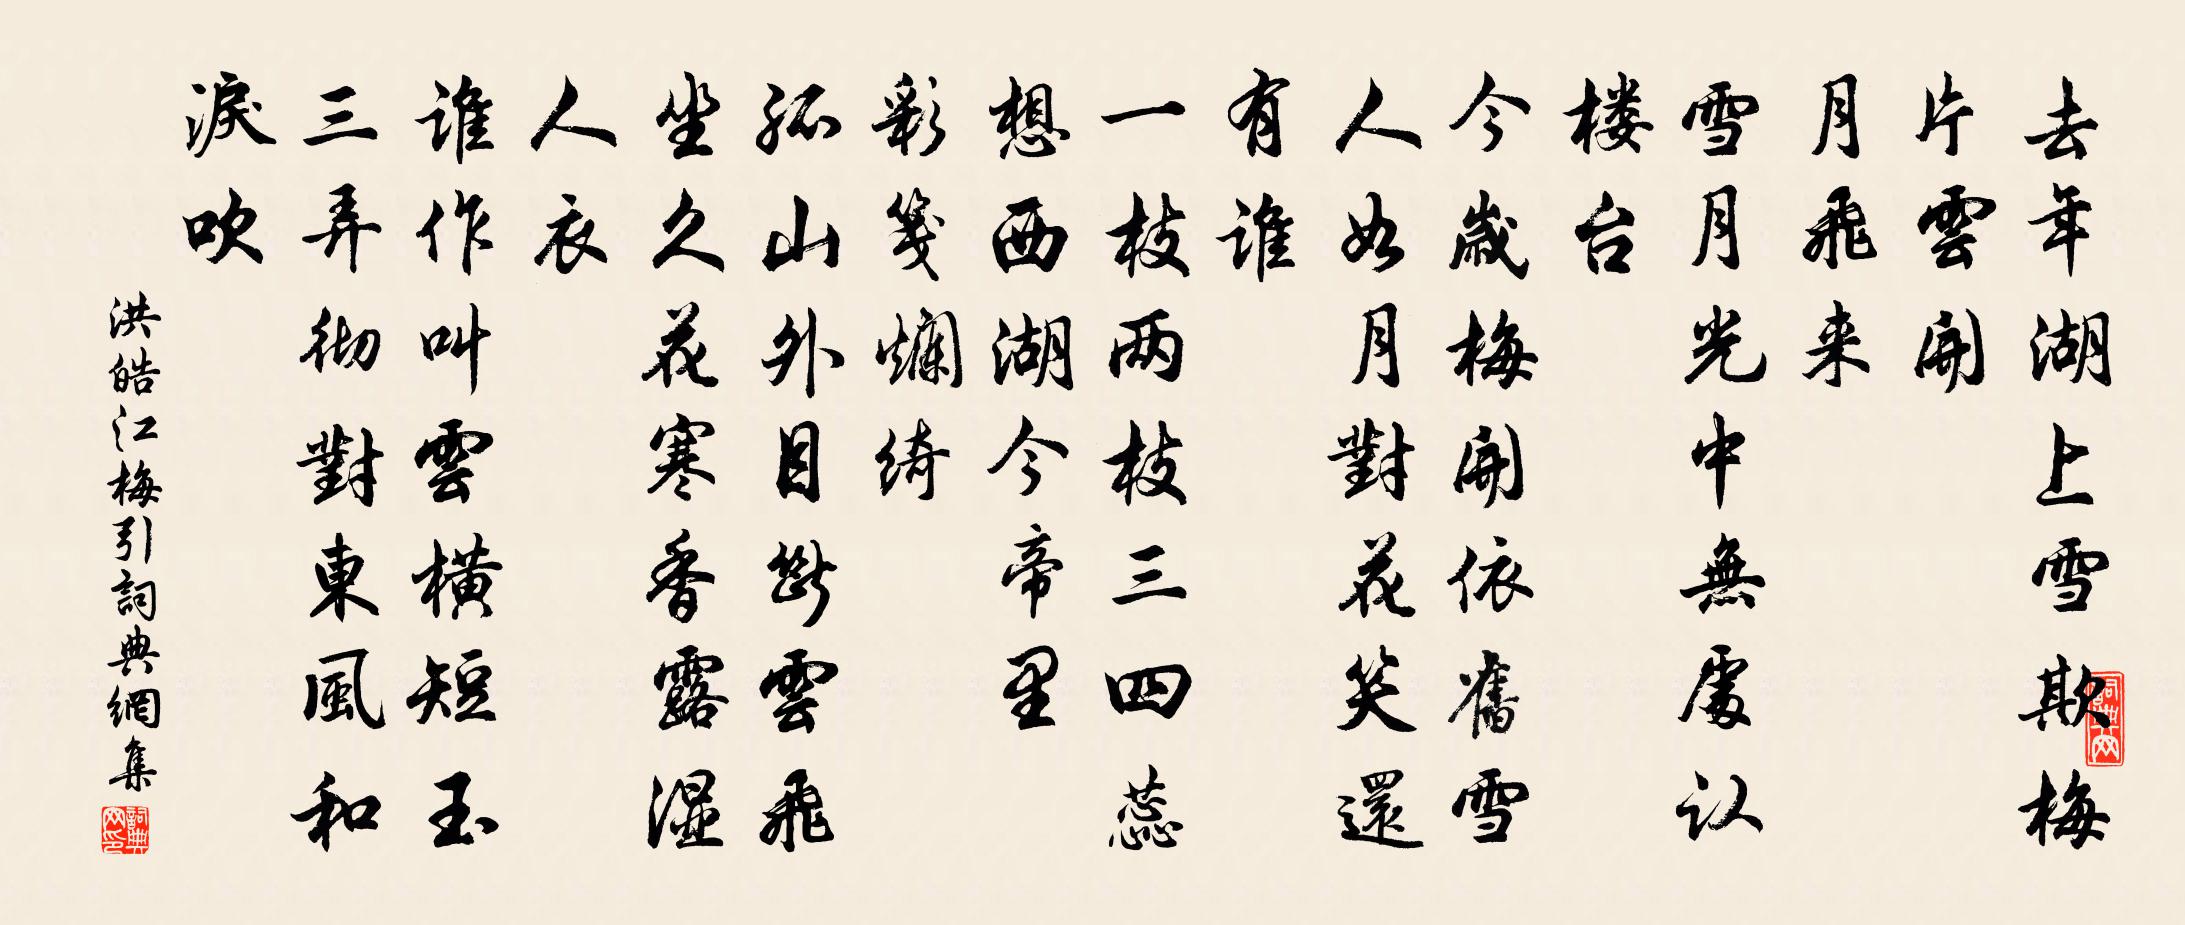 去年湖上雪欺梅
片雲開
月飛来
雪月光中無處认
楼台
今歲梅開依舊雪
人如月對花笑還
有谁
一枝两枝三四蕊
想西湖今帝里
彩笺爛绮
孤山外目斷雲飛
坐久花寒香露湿
人衣
谁作叫雲横短玉
三弄彻對東風和
淚吹
洪皓江梅引詞典網集
詞典网
詞典网印